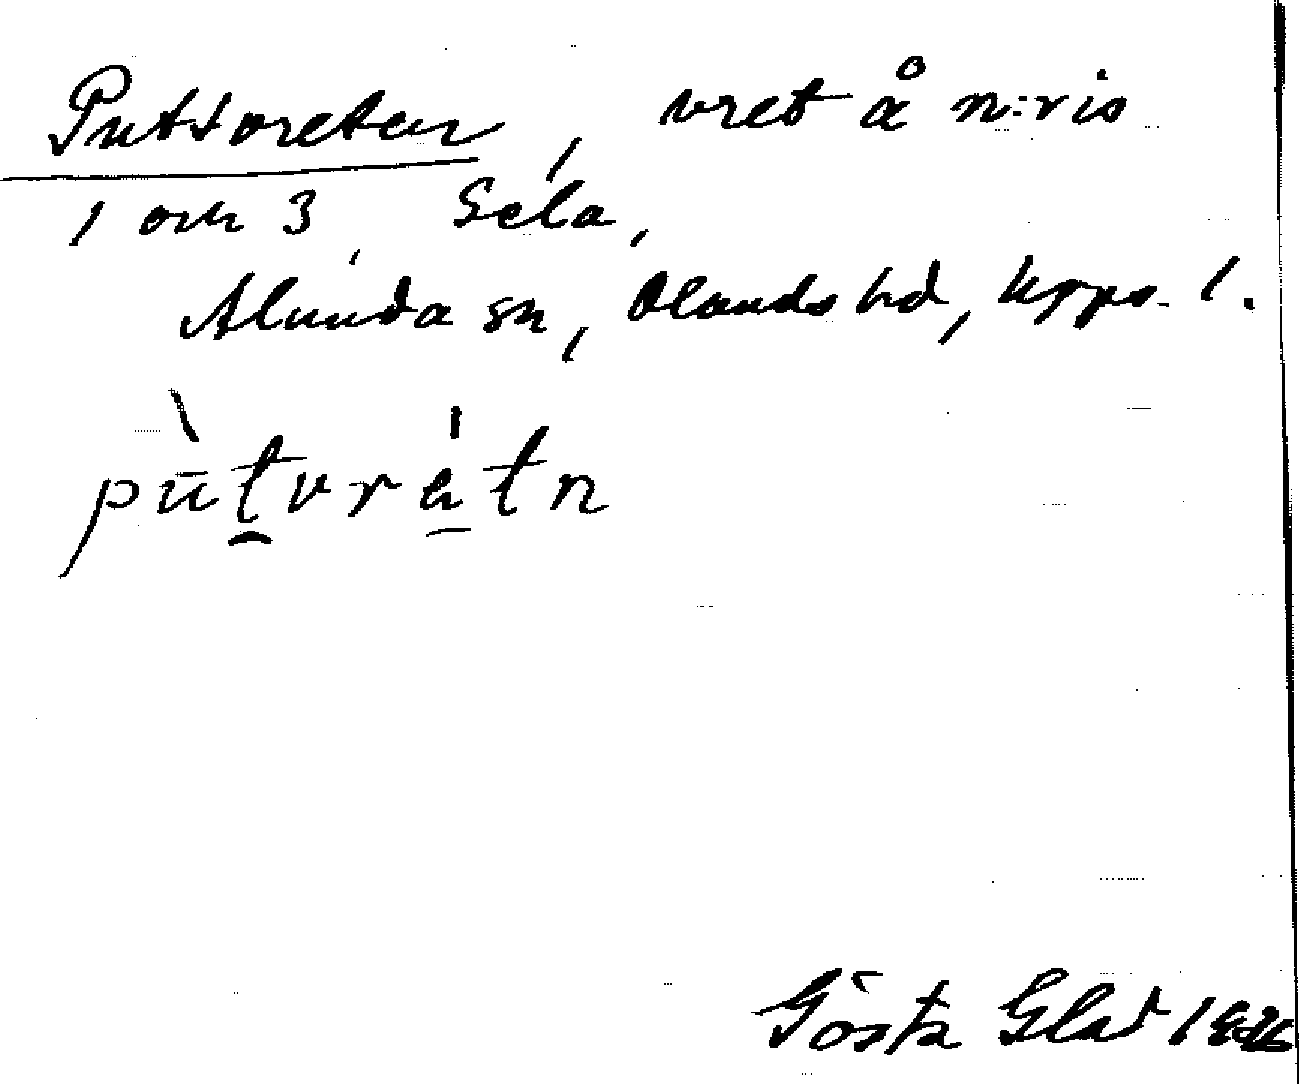 Puttvreten, vret å n:ris
1 och 3 Sela,
Alunda sn, Olands hd, Upps. l.
pùtvrétn
Gösta